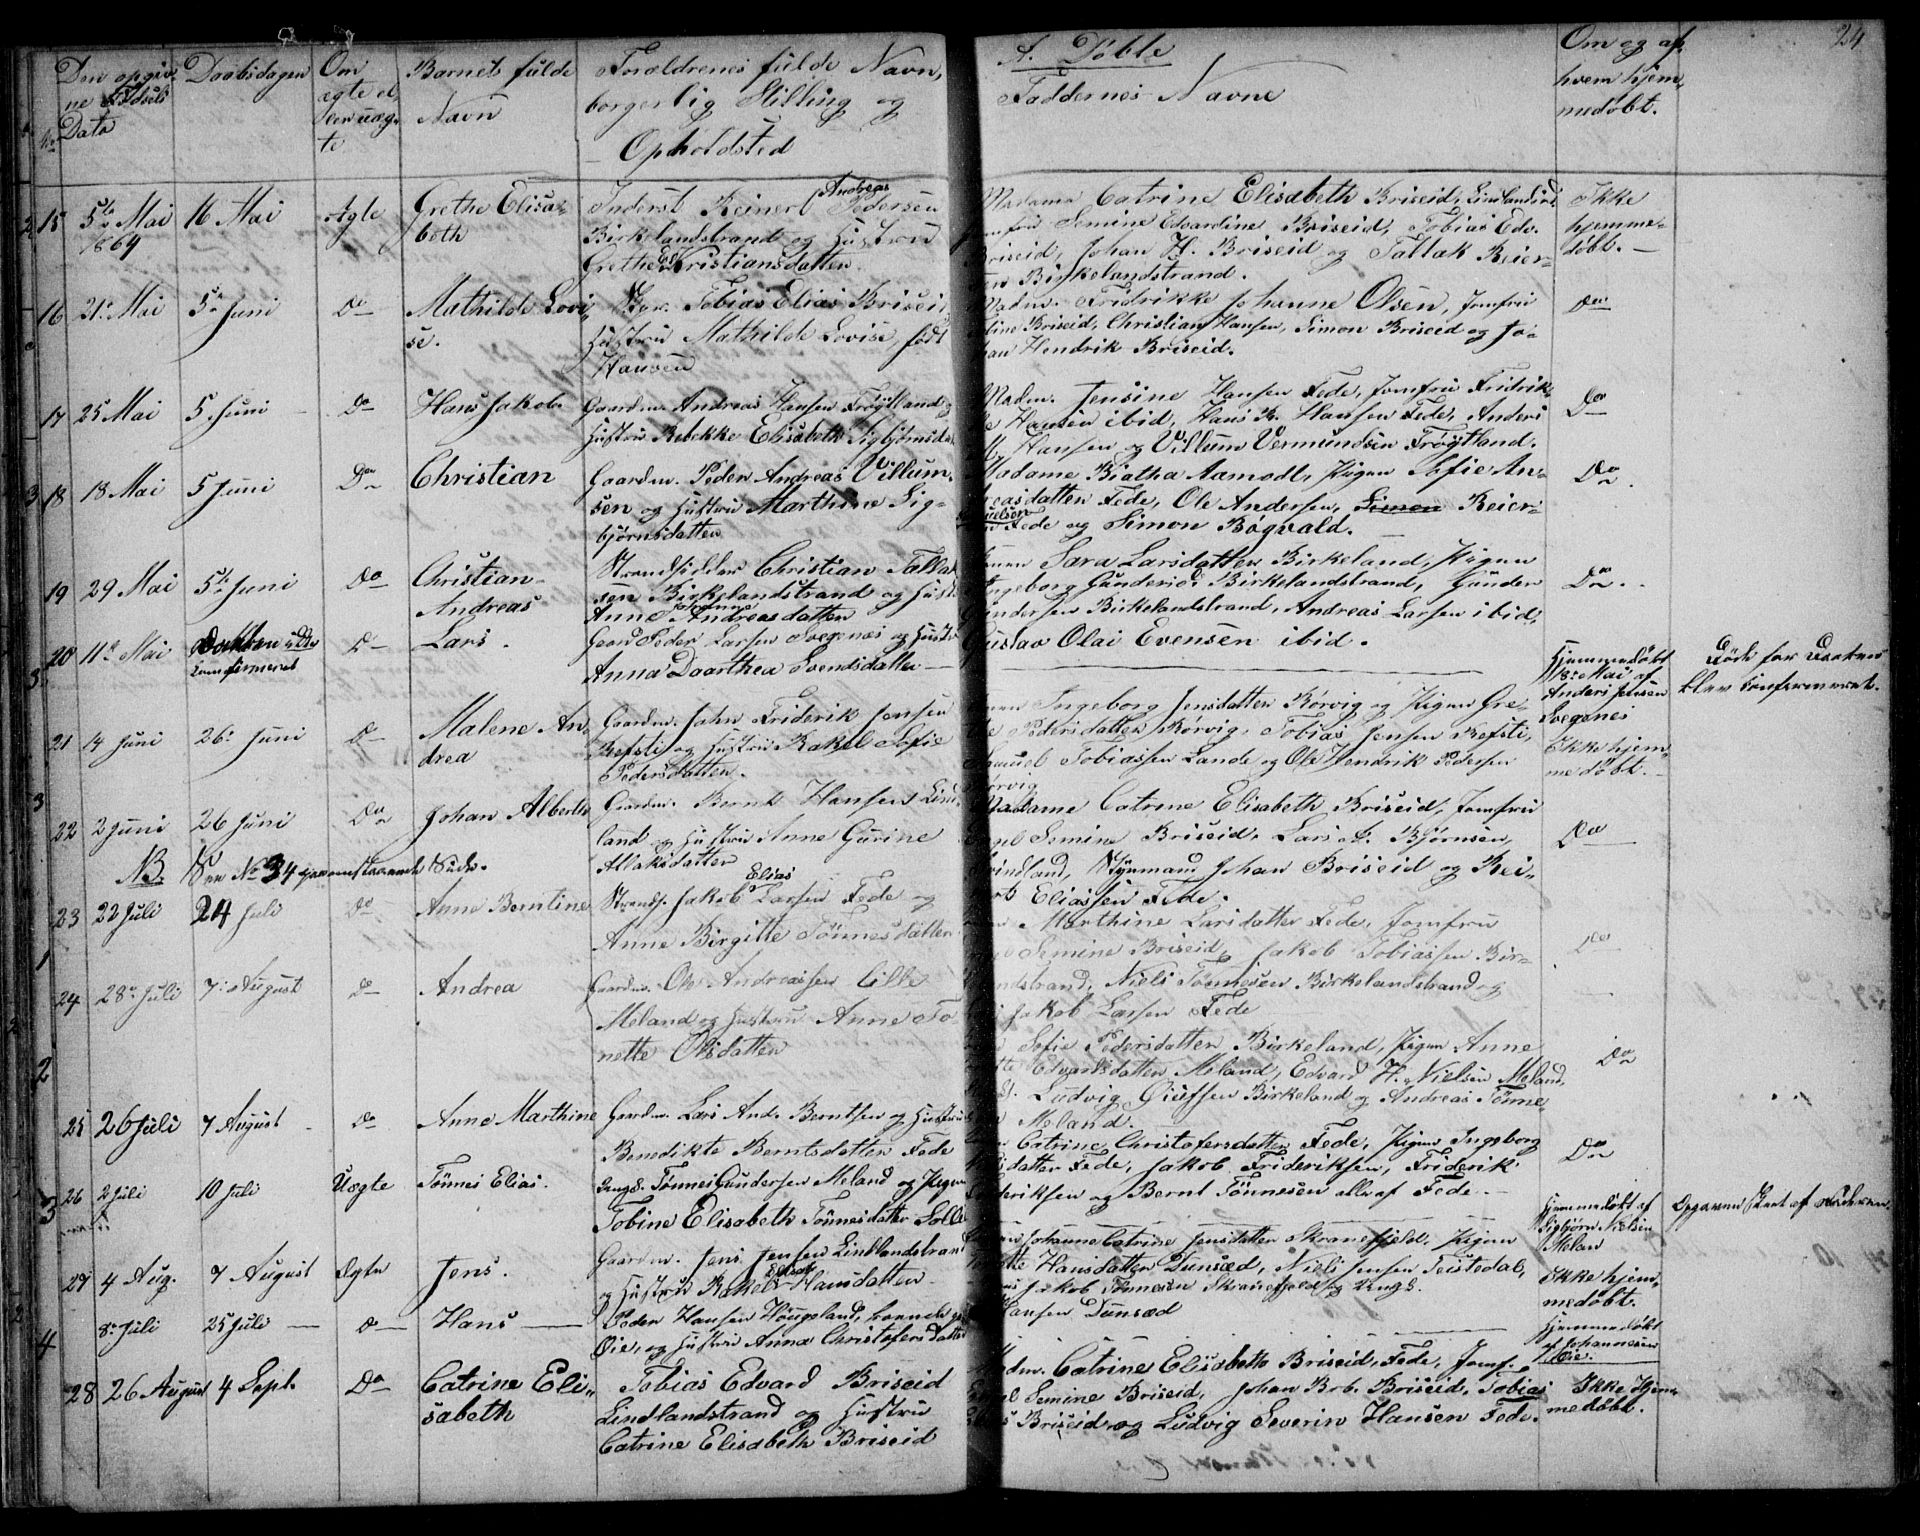 A. Døbte
24
No
Den opgivne Fødsels Dato
Daabsdagen
Om ægte eller uægte
Barnets fulde Navn
Forældrenes fulde Navn, borgerlig Stilling og Opholdsted
Faddernes Navne
Om og af hvem hjemmedøbt.
15 5te Mai 1864 16 Mai Ægte Grethe Elisabeth
Inderst Reinert Andreas Pedersen
Birkelandstrand og Hustru
Grethe Kristiansdatter.
Madame Catrine Elisabeth Briseid, Lindlandstrd
Semine Edvardine Briseid, Tobias Edv.
Briseid, Johan H. Briseid og Tallak Reier-
Birkelandstrand.
Ikke
hjemme-
døbt.
16 21 Mai 5te Juni Do Mathilde Lovise.
Tobias Elias Briseid
Hustru Mathilde Lovise født
Hansen
Madm. Fridrikke Johanne Olsen, Jomfru
Briseid, Christian Hansen, Simon Briseid og Jo-
han Hendrik Briseid.
Do
17 25 Mai 5 Juni Do Hans Jakob.
Gaardm. Andreas Hansen Frøytland
Hustru Rebekke Elisabeth
Madm. Jensine Hansen Fede, Jomfru Fridrik-
Hansen ibid, Hans B. Hansen Fede, Anders
Hansen og Villum Vermundsen Frøytland.
Do
18 18 Mai 5 Juni Do Christian
Gaardm. Peder Andreas Villum-
sen og Hustru Marthine Sig-
bjørnsdatter
Madame Aamodt, Pigen Sofie An-
dreasdatter Fede, Ole Andersen, Simon Reier-
Fede og Simon Bøgvald.
Do
19 29 Mai 5te Juni Do Christian Andreas
Strandsidder Christian Tallak-
sen Birkelandstrand og Hustru
Anne Johanne Andreasdatter
Sara Larsdatter Birkeland, Pigen
Ingeborg Birkelandstrand, Gunder
Gundersen Birkelandstrand, Andreas Larsen ibid,
Gustav Olai Evensen ibid.
Do
20 11te Mai Do Lars.
Peder Larsen Svegenæs og Hustru
Anna Daarthea Svendsdatter
Hjemmedøbt
18de Mai af
Anders Jensen
Svegenes
Død før Daaben
blev konfermeret.
21 14 Juni 26 Juni Do Malene Andrea
Gaardm. Jahn Friderik Jensen
Refsti og Hustru Rakel Sofie
Pedersdatter.
Ingeborg Jensdatter Rørvig og Pigen Gre-
Pedersdatter Rørvig, Tobias Jensen Refsti,
Samuel Tobiassen Lande og Ole Hendrik Pedersen
Rørvig
Ikke hjem-
medøbt.
22 2 Juni 26 Juni Do Johan Albert
Gaardm. Bernt Hansen Lind-
land og Hustru Anne Gurine
Atlaksdatter
Madame Catrine Elisabeth Briseid, Jomfru
Semine Briseid, Lars A. Bjørnsen,
Lindland, Styrmand Johan Briseid og Rei-
Eliassen Fede.
Do
NB. See No 34 Side.
23 22 Juli 24 Juli Do Anne Berntine
Strands. Jakob Elias Larsen Fede og
Anne Birgitte Tønnesdatter
Marthine Larsdatter Fede, Jomfru
Semine Briseid, Jakob Tobiassen Bir-
kelandstrand, Niels Tønnesen Birkelandstrand og
Jakob Larsen Fede
Do
24 28 Juli 7 August Do Andrea
Gaardm. Ole Andreassen Lille
Meland og Hustru Anne To-
nette Olsdatter
Sofie Pedersdatter Birkeland, Pigen Anne
Edvartsdatter Meland, Edvard H. Nielsen Meland,
Ludvig Birkeland og Andreas Tønne-
Meland.
Do
25 26 Juli 7 August Do Anne Marthine
Gaardm. Lars And. Berntsen og Hustru
Benedikte Berntsdatter Fede
Catrine Christofersdatter Fede, Pigen Ingeborg
datter Fede, Jakob Frideriksen, Friderik
Frideriksen og Bernt Tønnesen alle af Fede.
Do
26 2 Juli 10 Juli Uægte Tønnes Elias.
Ungk. Tønnes Gundersen Meland og Pigen
Tobine Elisabeth Tønnesdatter Solli
Hjemmedøbt af
Sigbjørn Nielsen
Melan
Opgaven skeet af Moderen.
27 4 Aug. 7 August Ægte Jens.
Gaardm. Jens Jensen Lindlandstrand
og Hustru Rakel Hansdatter
Johanne Catrine Jensdatter Skranefjeld, Pigen
Hansdatter Dunsæd, Niels Jensen Teistedal,
Jakob Tønnesen Skranefjeld og Ungk.
Hansen Dunsæd
Ikke hjem-
medøbt.
8de Juli 25 Juli Do Hans
Peder Hansen Høugeland,
Øie, og Hustru Anna Christofersdatter
Hjemmedøbt
af Johannesen
Øie.
28 26 August 4 Sept. Do Catrine Elisabeth
Tobias Edvard Briseid
Lindlandstrand og Hustru
Catrine Elisabeth Briseid
Madm. Catrine Elisabeth Briseid, Fede, Jomf.
Semine Briseid, Johan Brb. Briseid, Tobias
Briseid og Ludvig Severin Hansen Fede.
Ikke hjem-
medøbt.